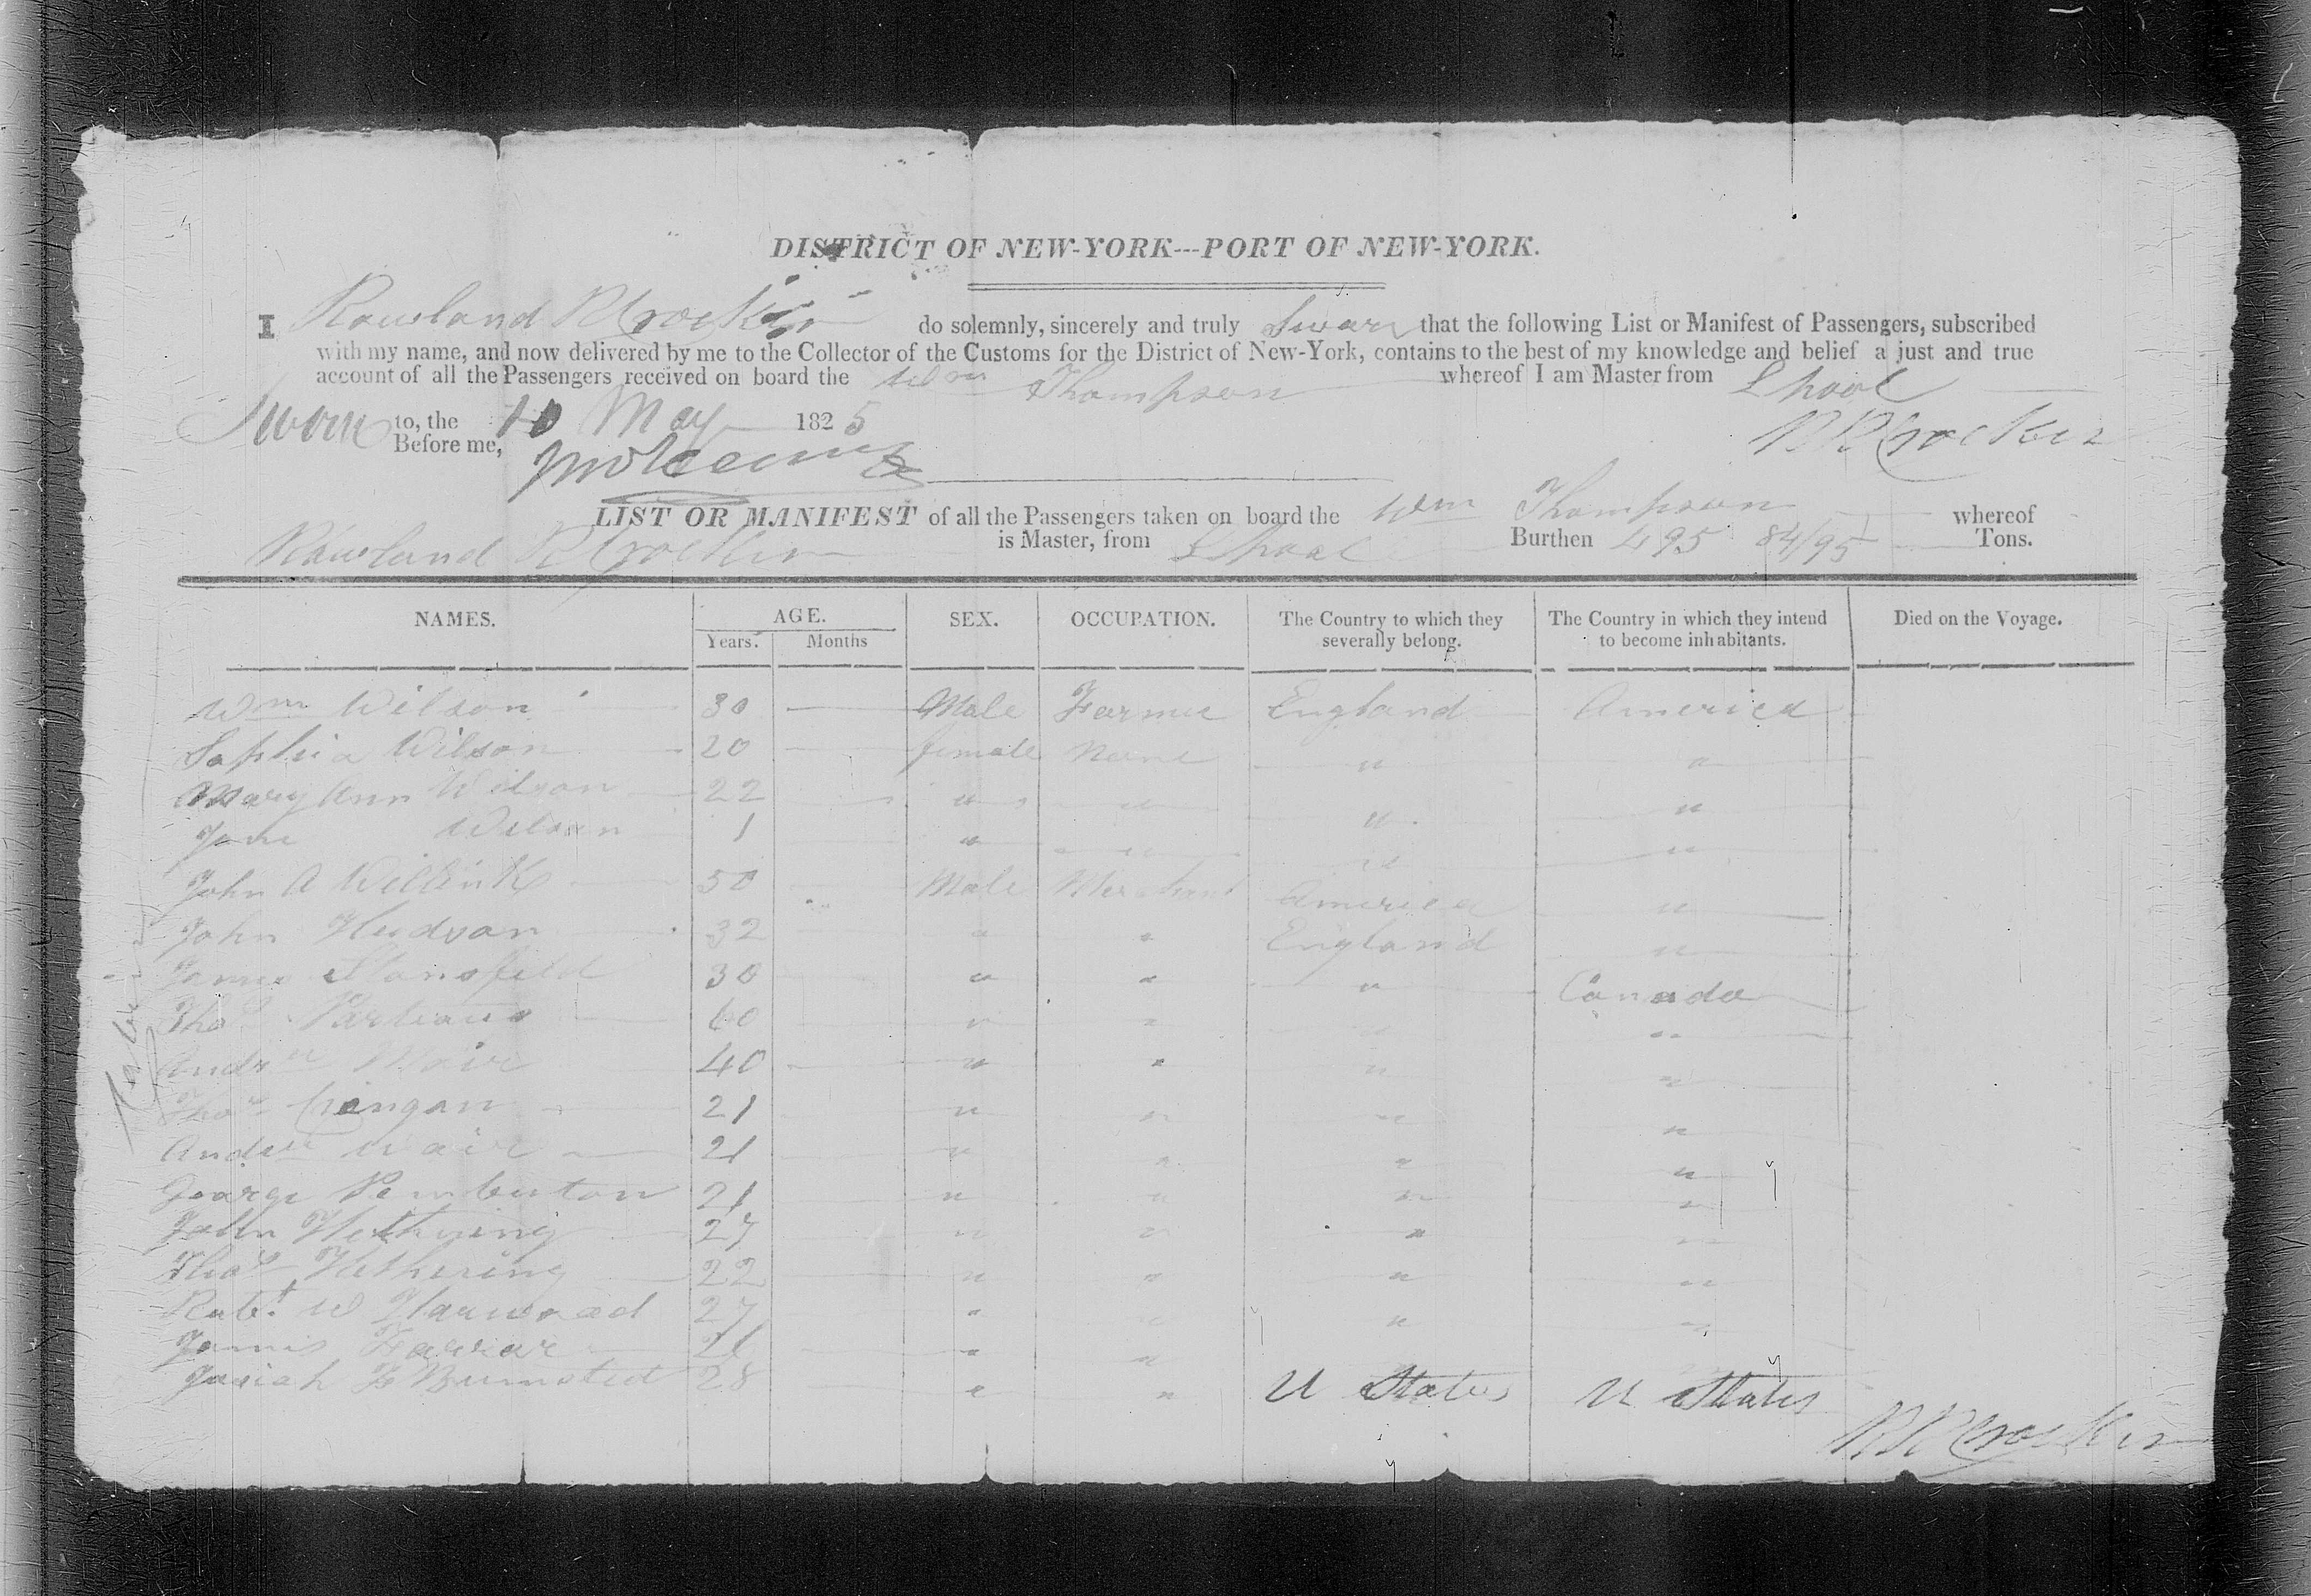 DISTRICT OF NEW-YORK---PORT OF NEW-YORK.
I Rowland R Crocker do solemnly, sincerely and truly Swear that the following List or Manifest of Passengers, subscribed
with my name, and now delivered by me to the Collector of the Customs for the District of New-York, contains to the best of my knowledge and belief a just and true
account of all the Passengers received on board the Wm Thompson whereof I am Master from Lpool
Sworn to, the 10 May 1825
Before me, R R Crocker
LIST OR MANIFEST of all the Passengers taken on board the Wm Thompson whereof
Rowland R Crocker is Master, from Lpool Burthen 495 84/95 Tons.
NAMES. AGE. SEX. OCCUPATION. The Country to which they severally belong. The Country in which they intend to become inhabitants. Died on the Voyage.
Years. Months
Wm Wilson 30 Male Farmer England America
Sophia Wilson 20 female None " "
Mary Ann Wilson 22 " " " "
Jane Wilson 1 " " " "
John A Willink 50 Male Merchant America "
John Hudson 32 " " England "
James Stansfeld 30 " " " Canada
Thos 60 " " " "
Andw Moir 40 " " " "
Thos 21 " " " "
Andw 21 " " " "
George Pemberton 21 " " " "
John Hethering 27 " " " "
Thos Hethering 22 " " " "
Robt W Harwood 27 " " " "
James Farrar 21 " "
Josiah F Bumsted 28 " " U States U States
R R Crocker